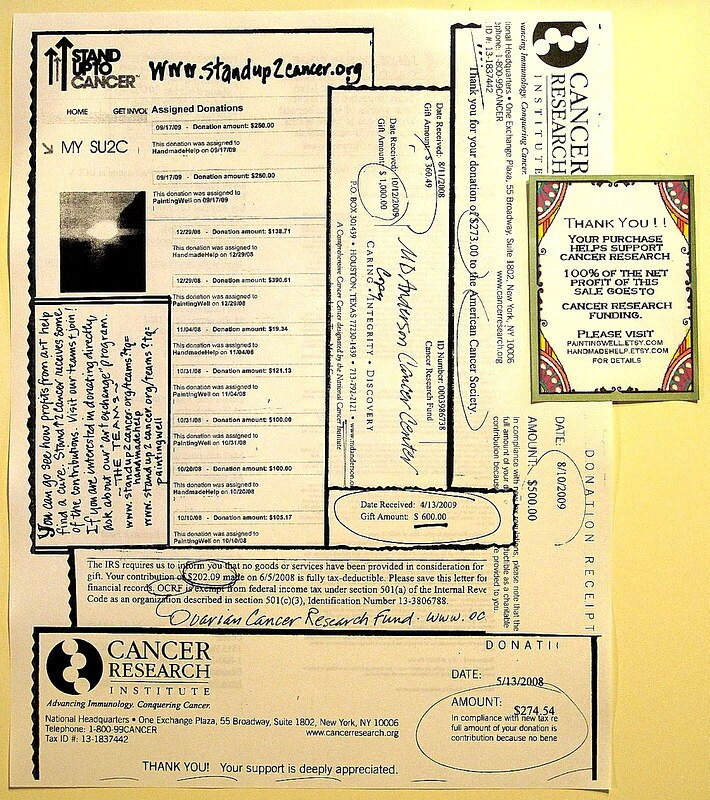 STAND
UP TO
CANCER
www.standup2cancer.org
HOME GET INVOL
MY SU2C
Assigned Donations
09/17/09 - Donation amount: $250.00
This donation was assigned to
HandmadeHelp on 09/17/09
09/17/09 - Donation amount: $250.00
This donation was assigned to
PaintingWell on 09/17/09
12/29/08 - Donation amount: $138.71
This donation was assigned to
HandmadeHelp on 12/29/08
12/29/08 - Donation amount: $390.61
This donation was assigned to
PaintingWell on 12/29/08
11/04/08 - Donation amount: $19.34
This donation was assigned to
HandmadeHelp on 11/04/08
10/31/08 - Donation amount: $121.13
This donation was assigned to
PaintingWell on 11/04/08
10/31/08 - Donation amount: $100.00
This donation was assigned to
PaintingWell on 10/31/08
10/20/08 - Donation amount: $100.00
This donation was assigned to
HandmadeHelp on 10/20/08
10/10/08 - Donation amount: $105.17
This donation was assigned to
PaintingWell on 10/10/08
You can go see how profits from art help
find a cure. Stand↑2Cancer receives some
of the contributions. Visit our teams if you!
If you are interested in donating directly,
ask about our "art exchange" program.
~THE TEAMS~
www.standup2cancer.org/teams?tq=
handmadehelp
www.standup2cancer.org/teams?tq=
paintingwell
Date Received: 8/11/2008
Gift Amount: $ 360.49
Date Received: 10/12/2009
Gift Amount: $ 1,000.00
ID Number: 0003986738
Cancer Research Fund
MD Anderson Cancer Center
Copy
CARING · INTEGRITY · DISCOVERY
P.O. BOX 301439 • HOUSTON, TEXAS 77230-1439 • 713-792-3121 • www.mdanderson.
A Comprehensive Cancer Center designated by the National Cancer Institute
Thank you for your donation of $273.00 to the American Cancer Society.
Date Received: 4/13/2009
Gift Amount: $ 600.00
CANCER
RESEARCH
INSTITUTE
vancing Immunology. Conquering Cancer.
tional Headquarters • One Exchange Plaza, 55 Broadway, Suite 1802, New York, NY 10006
ephone: 1-800-99CANCER www.cancerresearch.org
ID #: 13-1837442
DONATION RECEIPT
DATE: 8/10/2009
AMOUNT: $500.00
In compliance with
full amount of your
contribution because
please note that the
ductible as a charitable
re provided to you.
THANK YOU!!
YOUR PURCHASE
HELPS SUPPORT
CANCER RESEARCH
100% OF THE NET
PROFIT OF THIS
SALE GOES TO
CANCER RESEARCH
FUNDING.
PLEASE VISIT
PAINTINGWELL.ETSY.COM
HANDMADEHELP.ETSY.COM
FOR DETAILS
The IRS requires us to inform you that no goods or services have been provided in consideration for
gift. Your contribution of $202.09 made on 6/5/2008 is fully tax-deductible. Please save this letter for
financial records. OCRF is exempt from federal income tax under section 501(a) of the Internal Reve
Code as an organization described in section 501(c)(3), Identification Number 13-3806788.
Ovarian Cancer Research Fund. www.oc
CANCER
RESEARCH
INSTITUTE
Advancing Immunology. Conquering Cancer.
National Headquarters • One Exchange Plaza, 55 Broadway, Suite 1802, New York, NY 10006
Telephone: 1-800-99CANCER www.cancerresearch.org
Tax ID #: 13-1837442
DONATI
DATE: 5/13/2008
AMOUNT: $274.54
In compliance with new tax re
full amount of your donation is
contribution because no bene
THANK YOU! Your support is deeply appreciated.